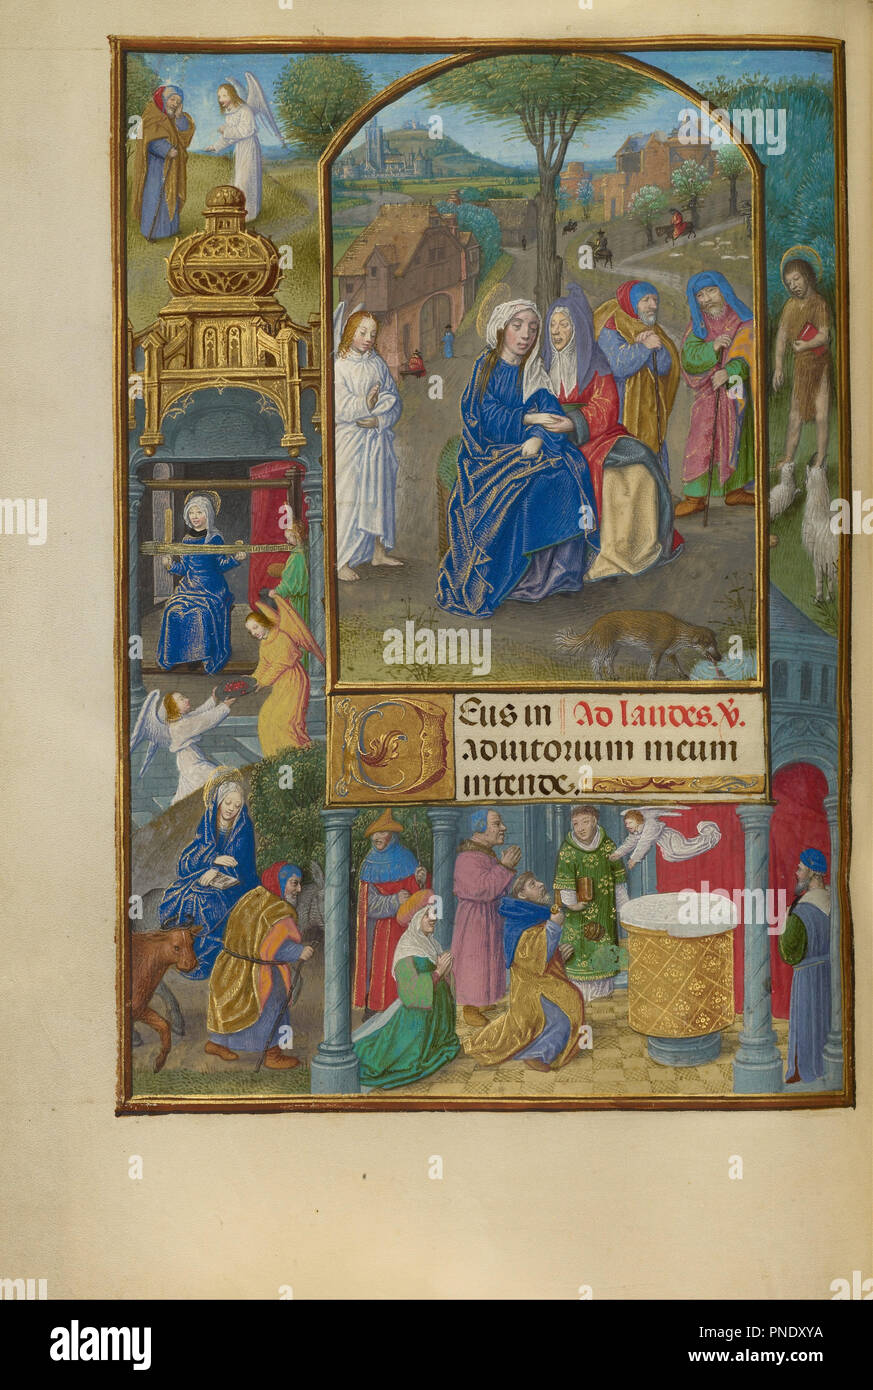 Eus in Ad laudes. V.
adiutorium meum
intende.
alamy
Image ID: PNDXYA
www.alamy.com